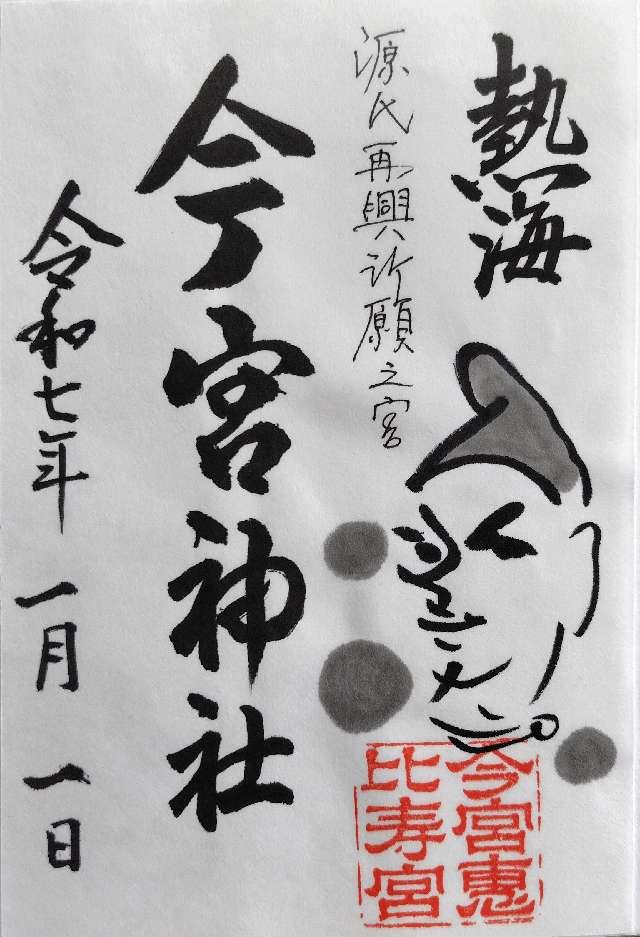 熱海
源氏再興祈願之宮
今宮神社
令和七年 一月 一日
今宮恵
比寿宮